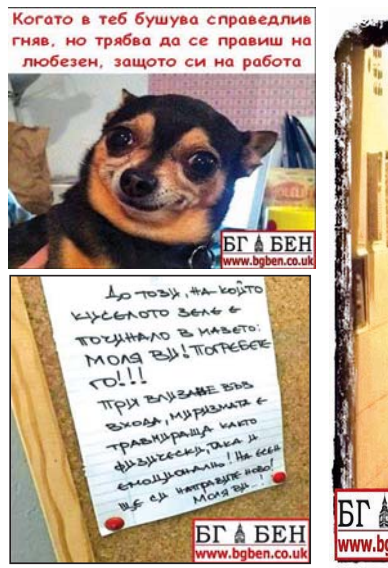 Когато в теб бушува справедлив
гняв, но трябва да се правиш на
любезен, защото си на работа
БГ БЕН
www.bgben.co.uk
До този, на който
киселото зеле е
починало в мазето:
Моля Ви! Погребете
го!!!
При влизане във
входа, миризмата е
травмираща както
физически, така и
емоционално! На есен
ще си направите ново!
Моля Ви...!
БГ БЕН
www.bgben.co.uk
БГ
www.bg